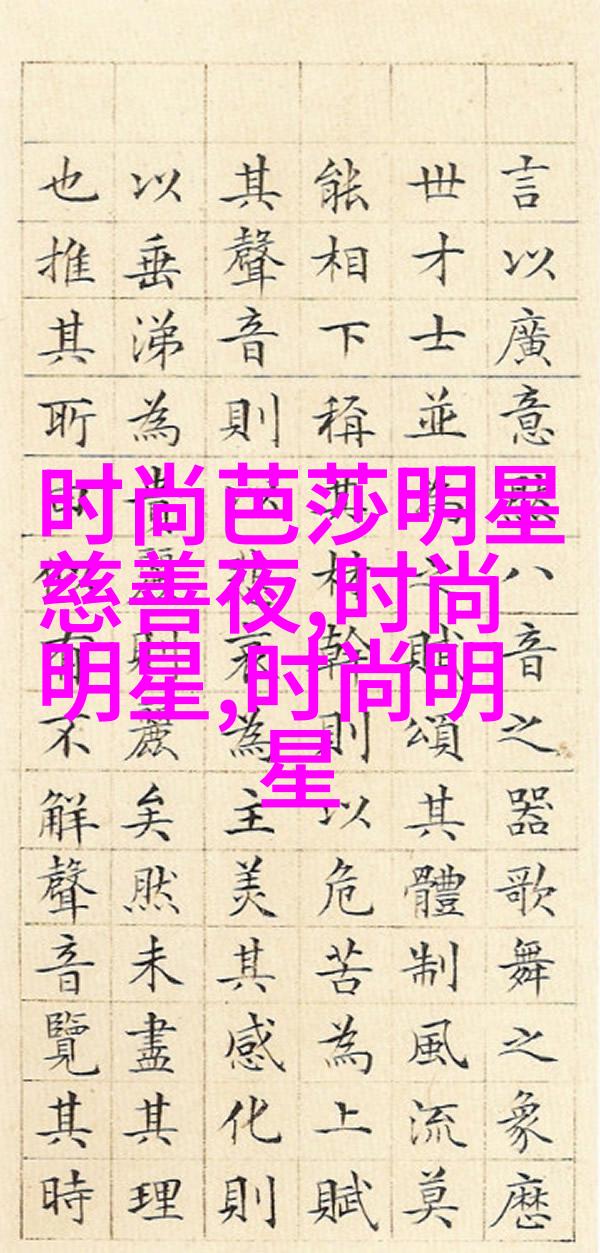 言以廣意然八音之器歌舞之象歷
世才士並為之賦頌其體制風流莫
能相下稱其材幹則以危苦為上賦
其聲音則以悲哀為主美其感化則
以垂涕為貴麗則麗矣然未盡其理
也推其所由似有不解聲音覽其時
时尚芭莎明星
慈善夜,时尚
明星,时尚明
星